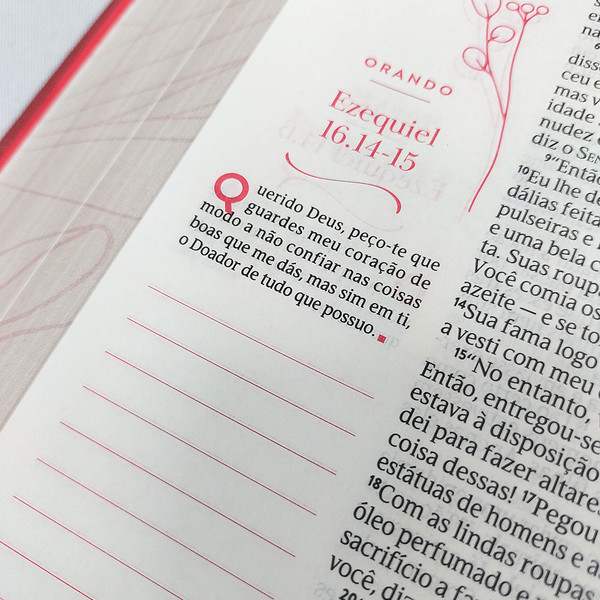 ORANDO
Ezequiel
16.14-15
Querido Deus, peço-te que
guardes meu coração de
modo a não confiar nas coisas
boas que me dás, mas sim em ti,
o Doador de tudo que possuo.
diss
ceu e
mas v
idade
nudez
diz o SEN
9“Então
10Eu lhe de
dálias feita
pulseiras e
e uma bela c
ta. Suas roup
Você comia os
azeite — e se to
14Sua fama logo
a vesti com meu
15“No entanto,
Então, entregou-se
estava à disposição
dei para fazer altare
coisa dessas! 17Pegou
estátuas de homens e a
18Com as lindas roupas
óleo perfumado e
sacrifício a fa
você, diz